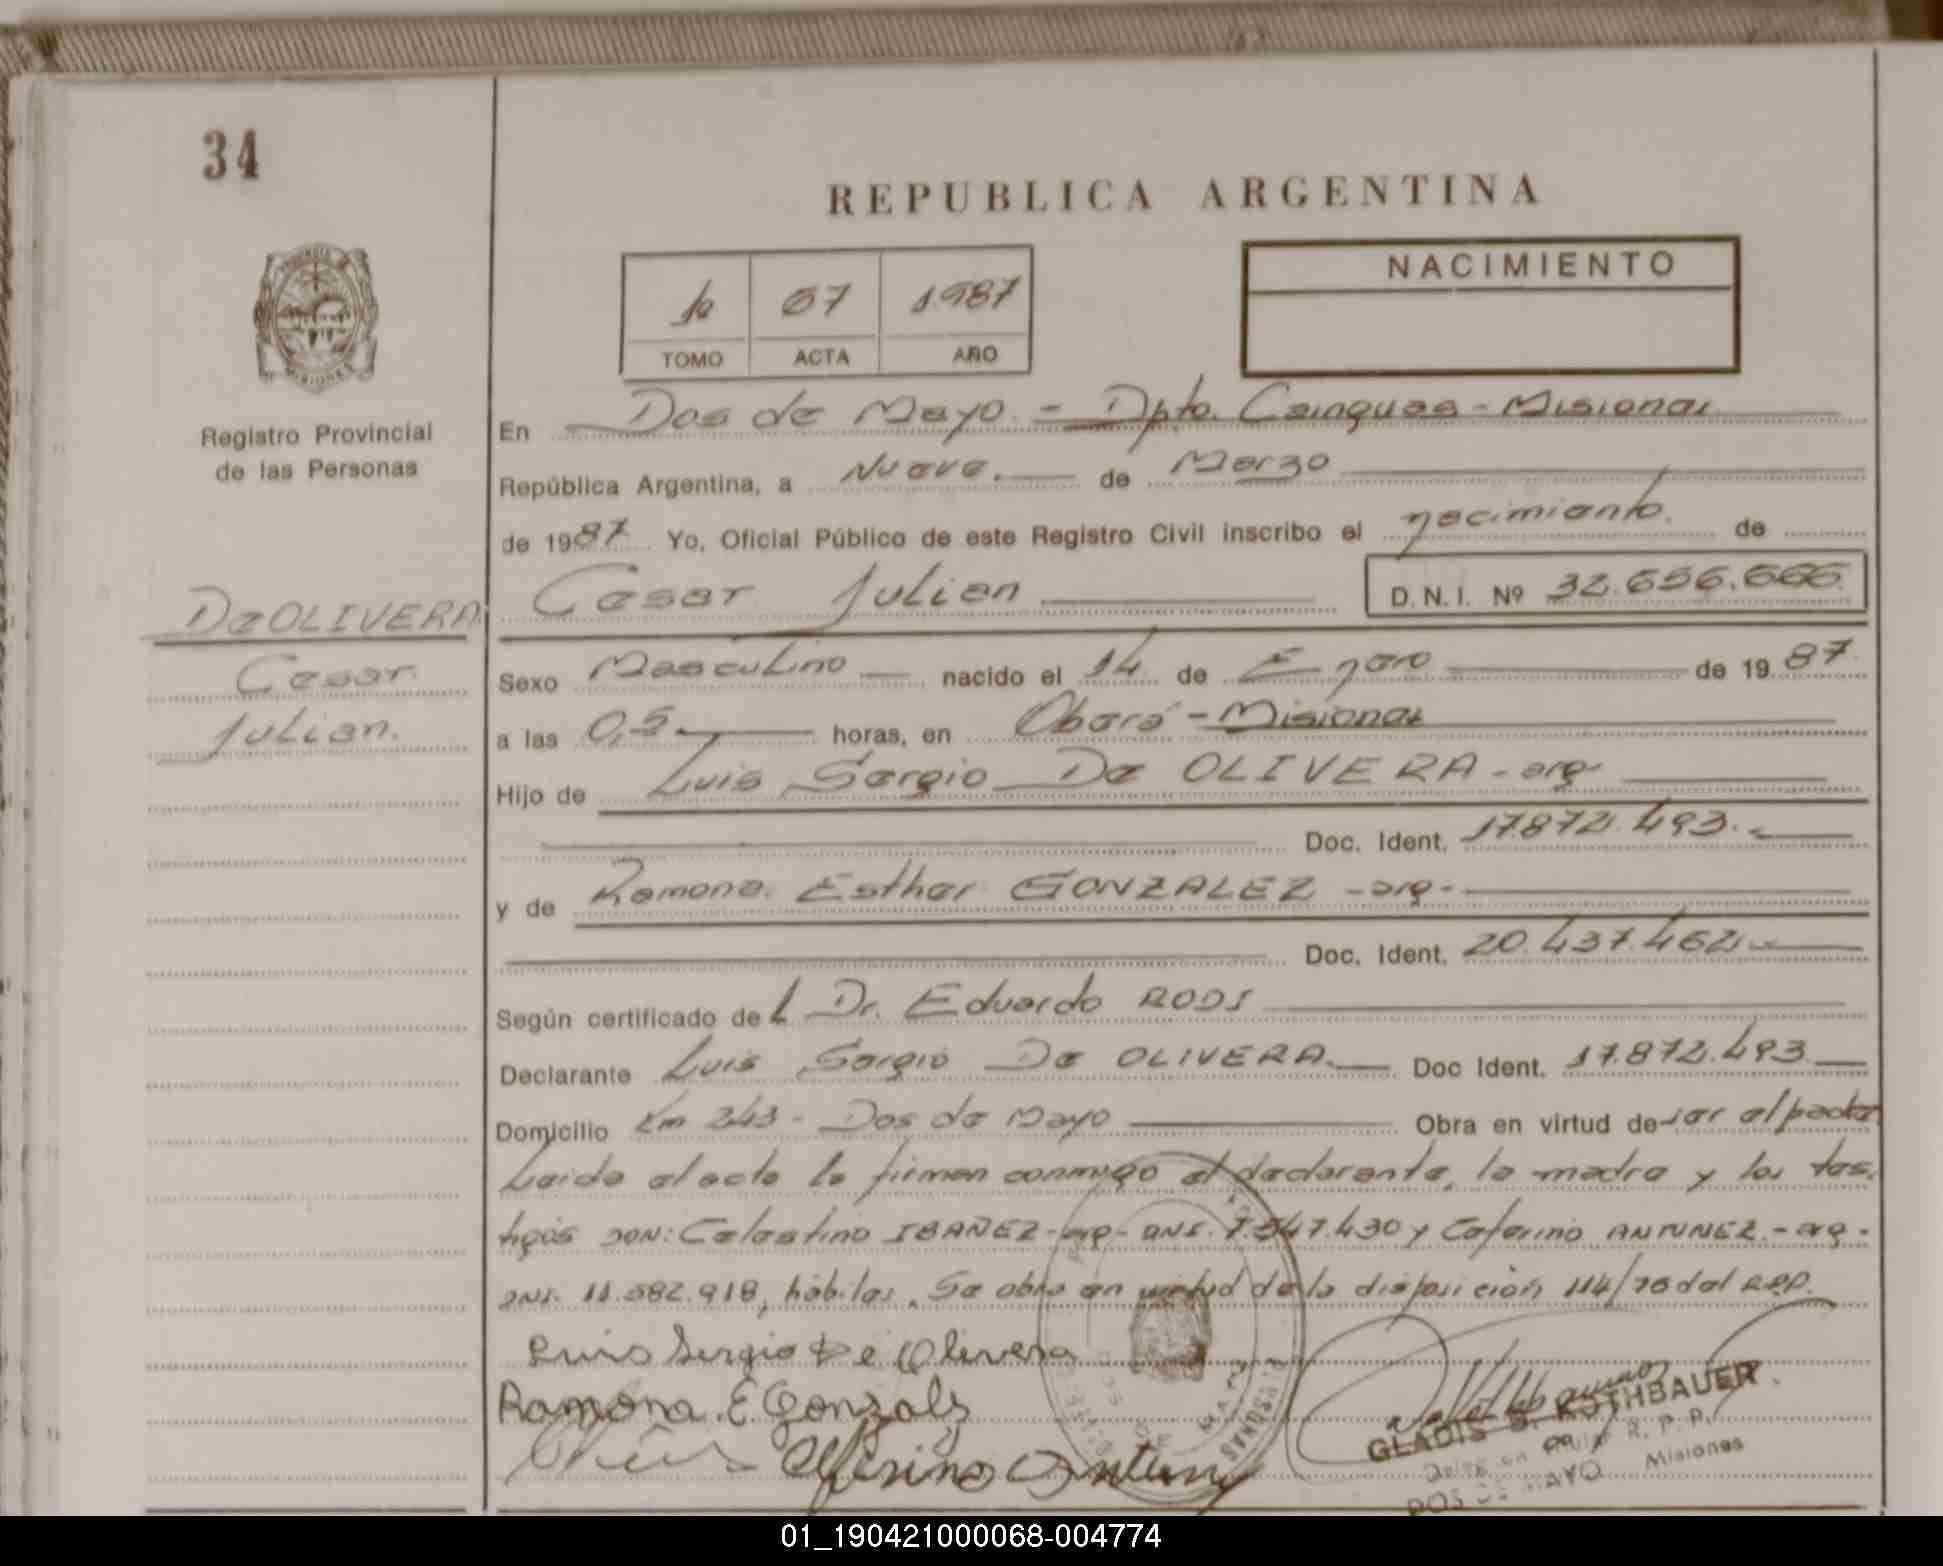 34
REPUBLICA ARGENTINA
NACIMIENTO
1º 67 1.987
TOMO ACTA AÑO
Registro Provincial
de las Personas
En Dos de Mayo - Dpto. Cainguas - Misiones
República Argentina, a Nueve. de Marzo
de 1987 Yo, Oficial Público de este Registro Civil inscribo el nacimiento. de
Cesar Julian D.N.I. Nº 32.656.666
De OLIVERA
Cesar
Julian.
Sexo Masculino nacido el 14 de Enero de 19 87.
a las 0,5 horas, en Oberá - Misiones
Hijo de Luis Sergio De OLIVERA - arg-
Doc. Ident. 17.872.493.-
y de Ramona Esther GONZALEZ - arg-
Doc. Ident. 20.437.462.-
Según certificado del Dr. Eduardo
Declarante Luis Sergio De OLIVERA.- Doc Ident. 17.872.493.
Domicilio Km 243 - Dos de Mayo Obra en virtud de ser el padre
Leida el acta la firman conmigo el declarante, la madre y los tes-
tigos DON: Celestino IBAÑEZ - arg - DNI. 7.547.430 y Ceferino ANTUNEZ.- arg -
DNI. 11.582.918, hábiles. Se obra en virtud de la disposición 114/76 del R.P.P.
Luis Sergio De Olivera
Ramona E Gonzals
GLADIS S. ROTHBAUER
R. P. P.
DOS DE MAYO Misiones
01_190421000068-004774